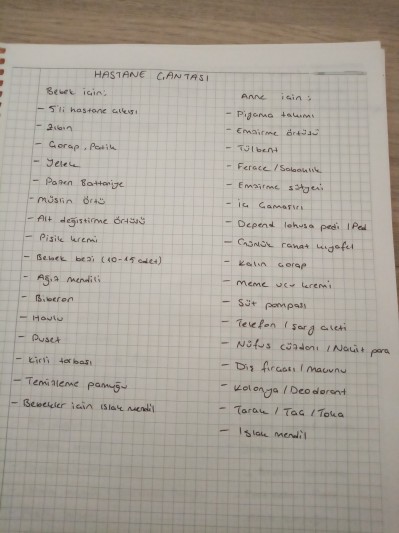 HASTANE ÇANTASI
Bebek için:
- 5'li hastane çıkışı
- Zıbın
- Çorap, Patik
- Yelek
- Pazen Battaniye
- Müslin Örtü
- Alt değiştirme Örtüsü
- Pişik kremi
- Bebek bezi (10-15 adet)
- Ağız mendili
- Biberon
- Havlu
- Puset
- Kirli torbası
- Temizleme pamuğu
- Bebekler için Islak mendil
Anne için:
- Pijama takımı
- Emzirme örtüsü
- Tülbent
- Ferace / Sabahlık
- Emzirme sütyeni
- İç Çamaşırı
- Depend lohusa pedi / Ped
- Günlük rahat kıyafet
- Kalın çorap
- meme ucu kremi
- Süt pompası
- Telefon / şarj aleti
- Nüfus cüzdanı / Nakit para
- Diş fırçası / macunu
- Kolonya / Deodorant
- Tarak / Taç / Toka
- Islak mendil